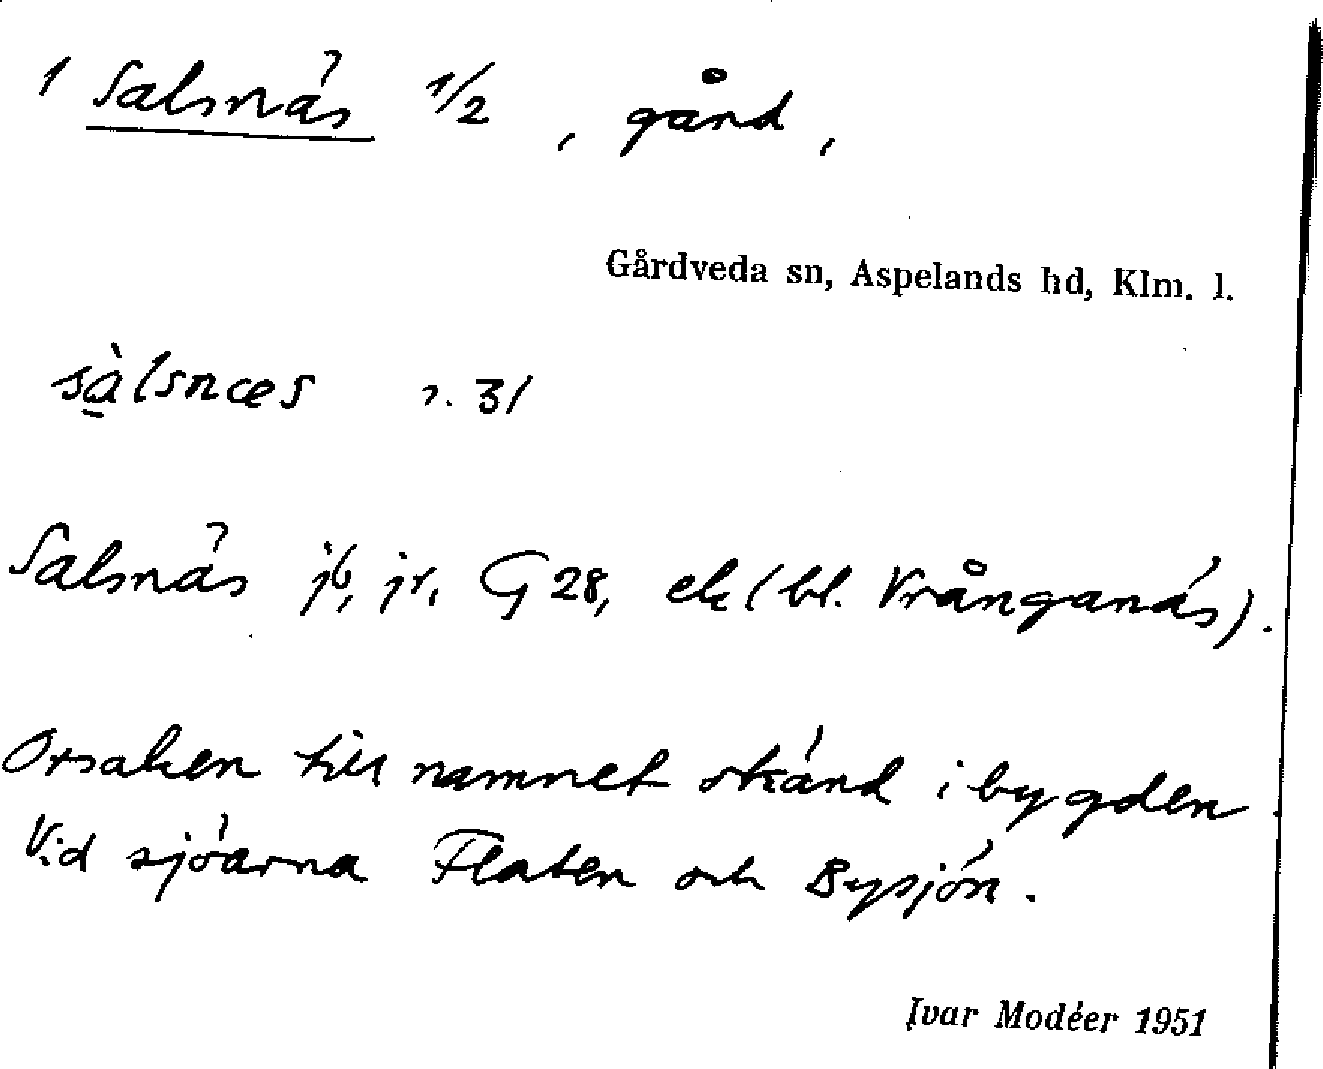 1 Salsnäs 1/2 , gård ,
Gårdveda sn, Aspelands hd, Klm. l.
sà̱lsnæs r. 31
Salsnäs jb, jr, G 28, ek (bl. Vrånganäs).
Orsaken till namnet okänd i bygden.
Vid sjöarna Flaten och Bysjön.
Ivar Modéer 1951